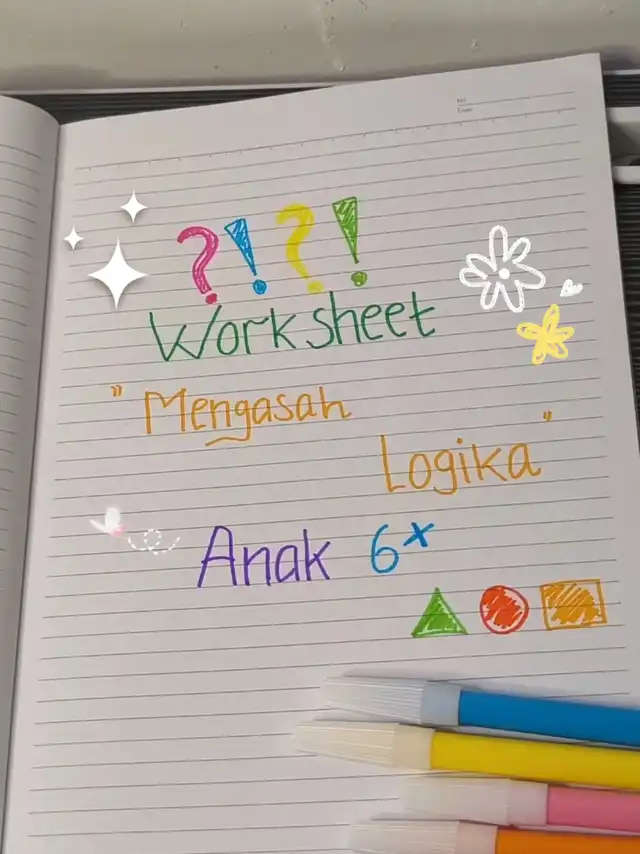 ?!?!
Worksheet
"Mengasah
Logika"
Anak 6+